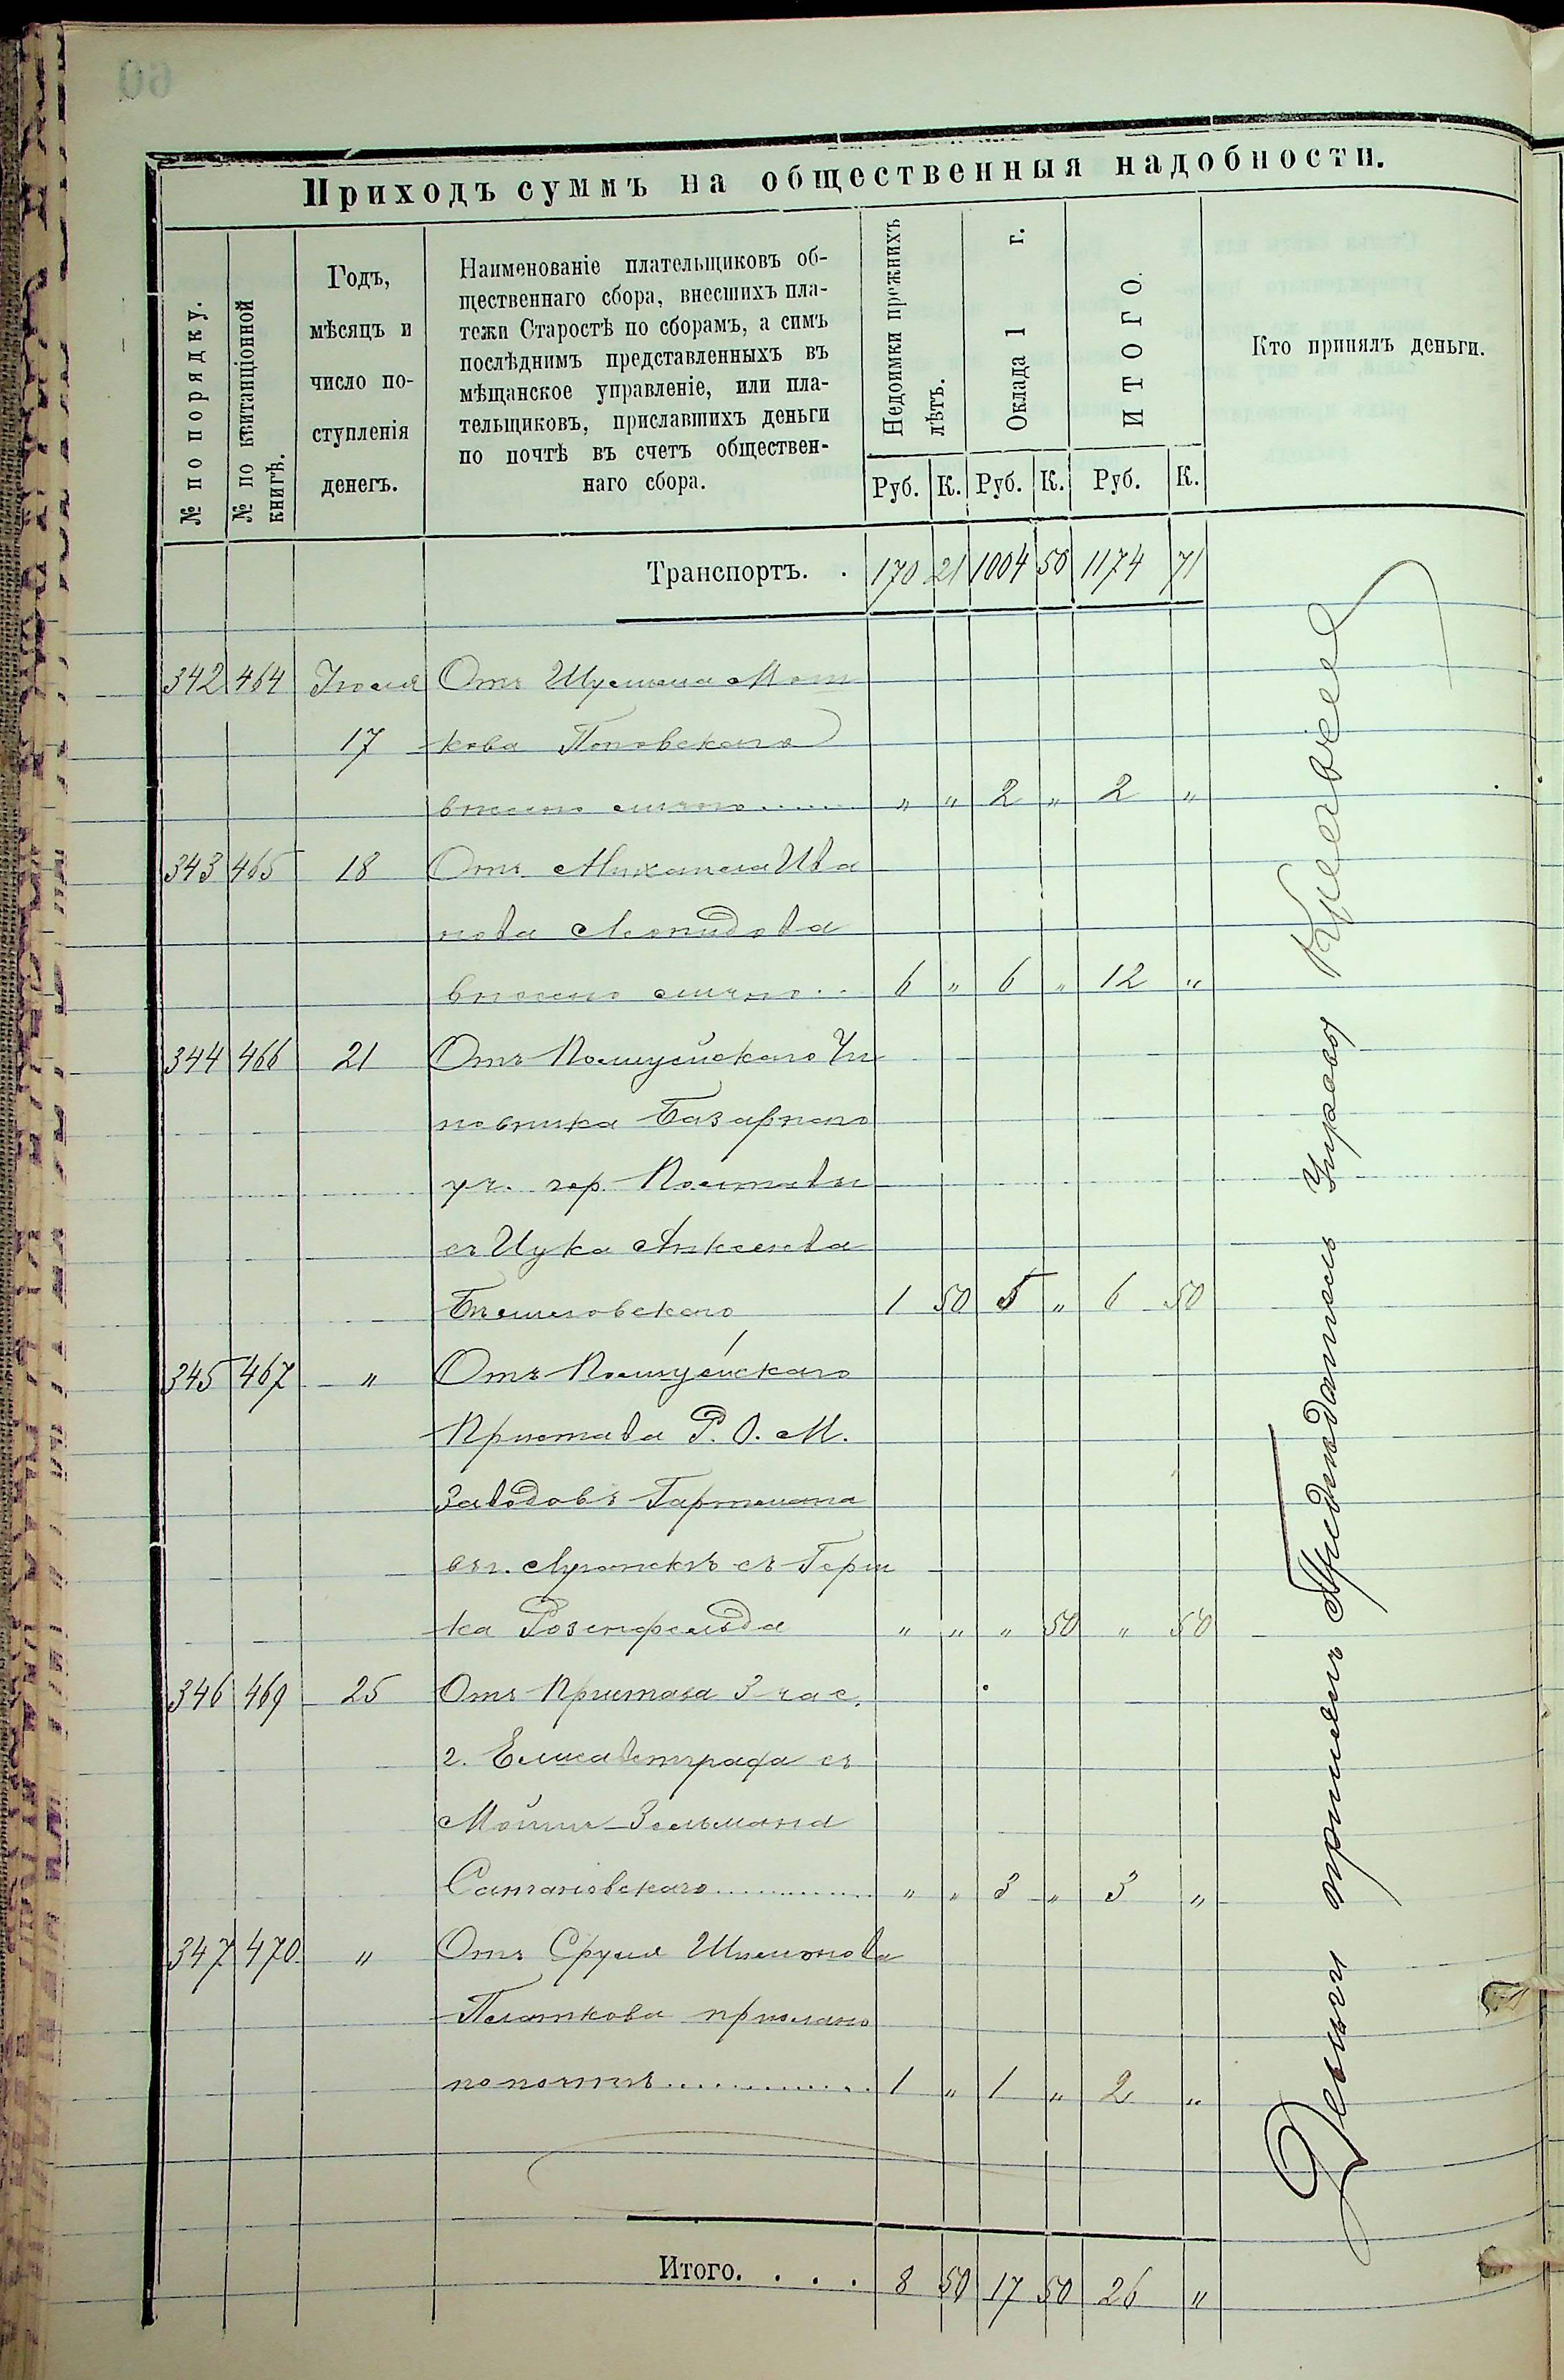 Приходъ суммъ на общественныя надобности.
№ по порядку.
№ по квитанціонной книгѣ.
Годъ,
мѣсяцъ и
число по-
ступленія
денегъ.
Наименованіе плательщиковъ об-
щественнаго сбора, внесшихъ пла-
тежи Старостѣ по сборамъ, а симъ
послѣднимъ представленныхъ въ
мѣщанское управленіе, или пла-
тельщиковъ, приславшихъ деньги
по почтѣ въ счетъ обществен-
наго сбора.
Недоимки прежнихъ лѣтъ.
Оклада 1 г.
ИТОГО.
Кто принялъ деньги.
Руб. К. Руб. К. Руб. К.
Транспортъ. . 170 21 1004 50 1174 71
342 464 Іюля Отъ Шулима Мот
17 кова Поповскаго
внесено лично...... " " 2 " 2 "
343 465 18 Отъ Михаила Ива
нова Леонидова
внесено лично.. 6 " 6 " 12 "
344 466 21 Отъ Полицейскаго Чи
новника Базарнаго
уч. гор. Полтавы
съ Ицка
1 50 5 " 6 50
345 467 " Отъ Полицейскаго
Пристава Р. О. М.
Заводовъ Гартмана
въ г. Луганскѣ съ Герш
ка Розенфельда " " " 50 " 50
346 469 25 Отъ Пристава 3 час.
г. Елисаветграда съ
Зельмана
Сатановскаго............ " " 3 " 3 "
347 470 " Отъ Сруля Шимонова
Платкова прислано
по почтѣ............ 1 " 1 " 2 "
Итого. . . . 8 50 17 50 26 "
Деньги принялъ Предсѣдатель Управы